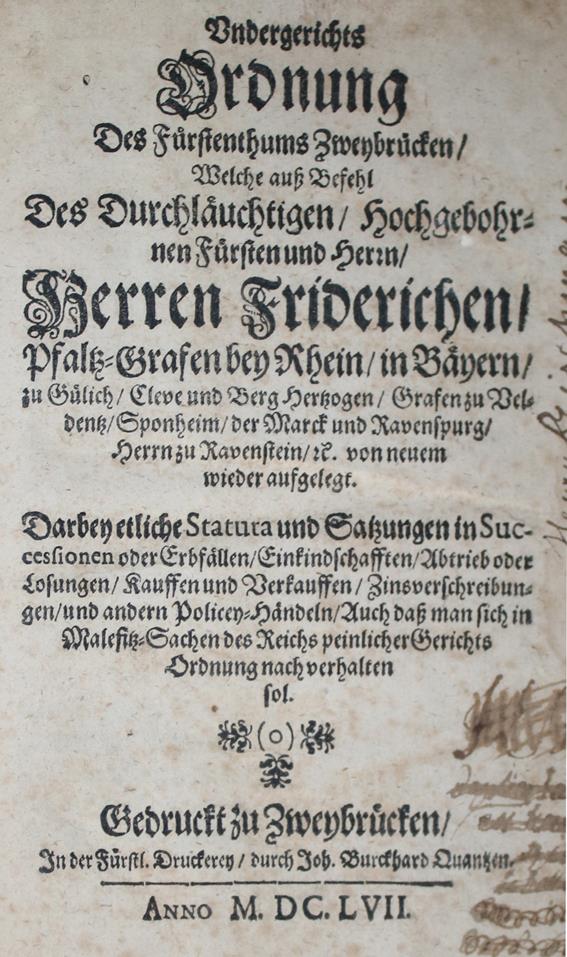 Vndergerichts
Ordnung
Des Fürstenthums Zweybrücken/
Welche auß Befehl
Des Durchläuchtigen/ Hochgebohr-
nen Fürsten und Herrn/
Herren Friderichen/
Pfaltz-Grafen bey Rhein/ in Bäyern/
zu Gülich/ Cleve und Berg Hertzogen/ Grafen zu Vel-
dentz/ Sponheim/ der Marck und Ravenspurg/
Herrn zu Ravenstein/ ꝛc. von neuem
wieder aufgelegt.
Darbey etliche Statura und Satzungen in Suc-
cessionen oder Erbfällen/ Einkindschafften/ Abtrieb oder
Losungen/ Kauffen und Verkauffen/ Zinsverschreibun-
gen/ und andern Policey-Händeln/ Auch daß man sich in
Malefitz-Sachen des Reichs peinlicher Gerichts
Ordnung nach verhalten
sol.
Gedruckt zu Zweybrücken/
In der Fürstl. Druckerey/ durch Joh. Burckhard Quantzen.
ANNO M. DC. LVII.